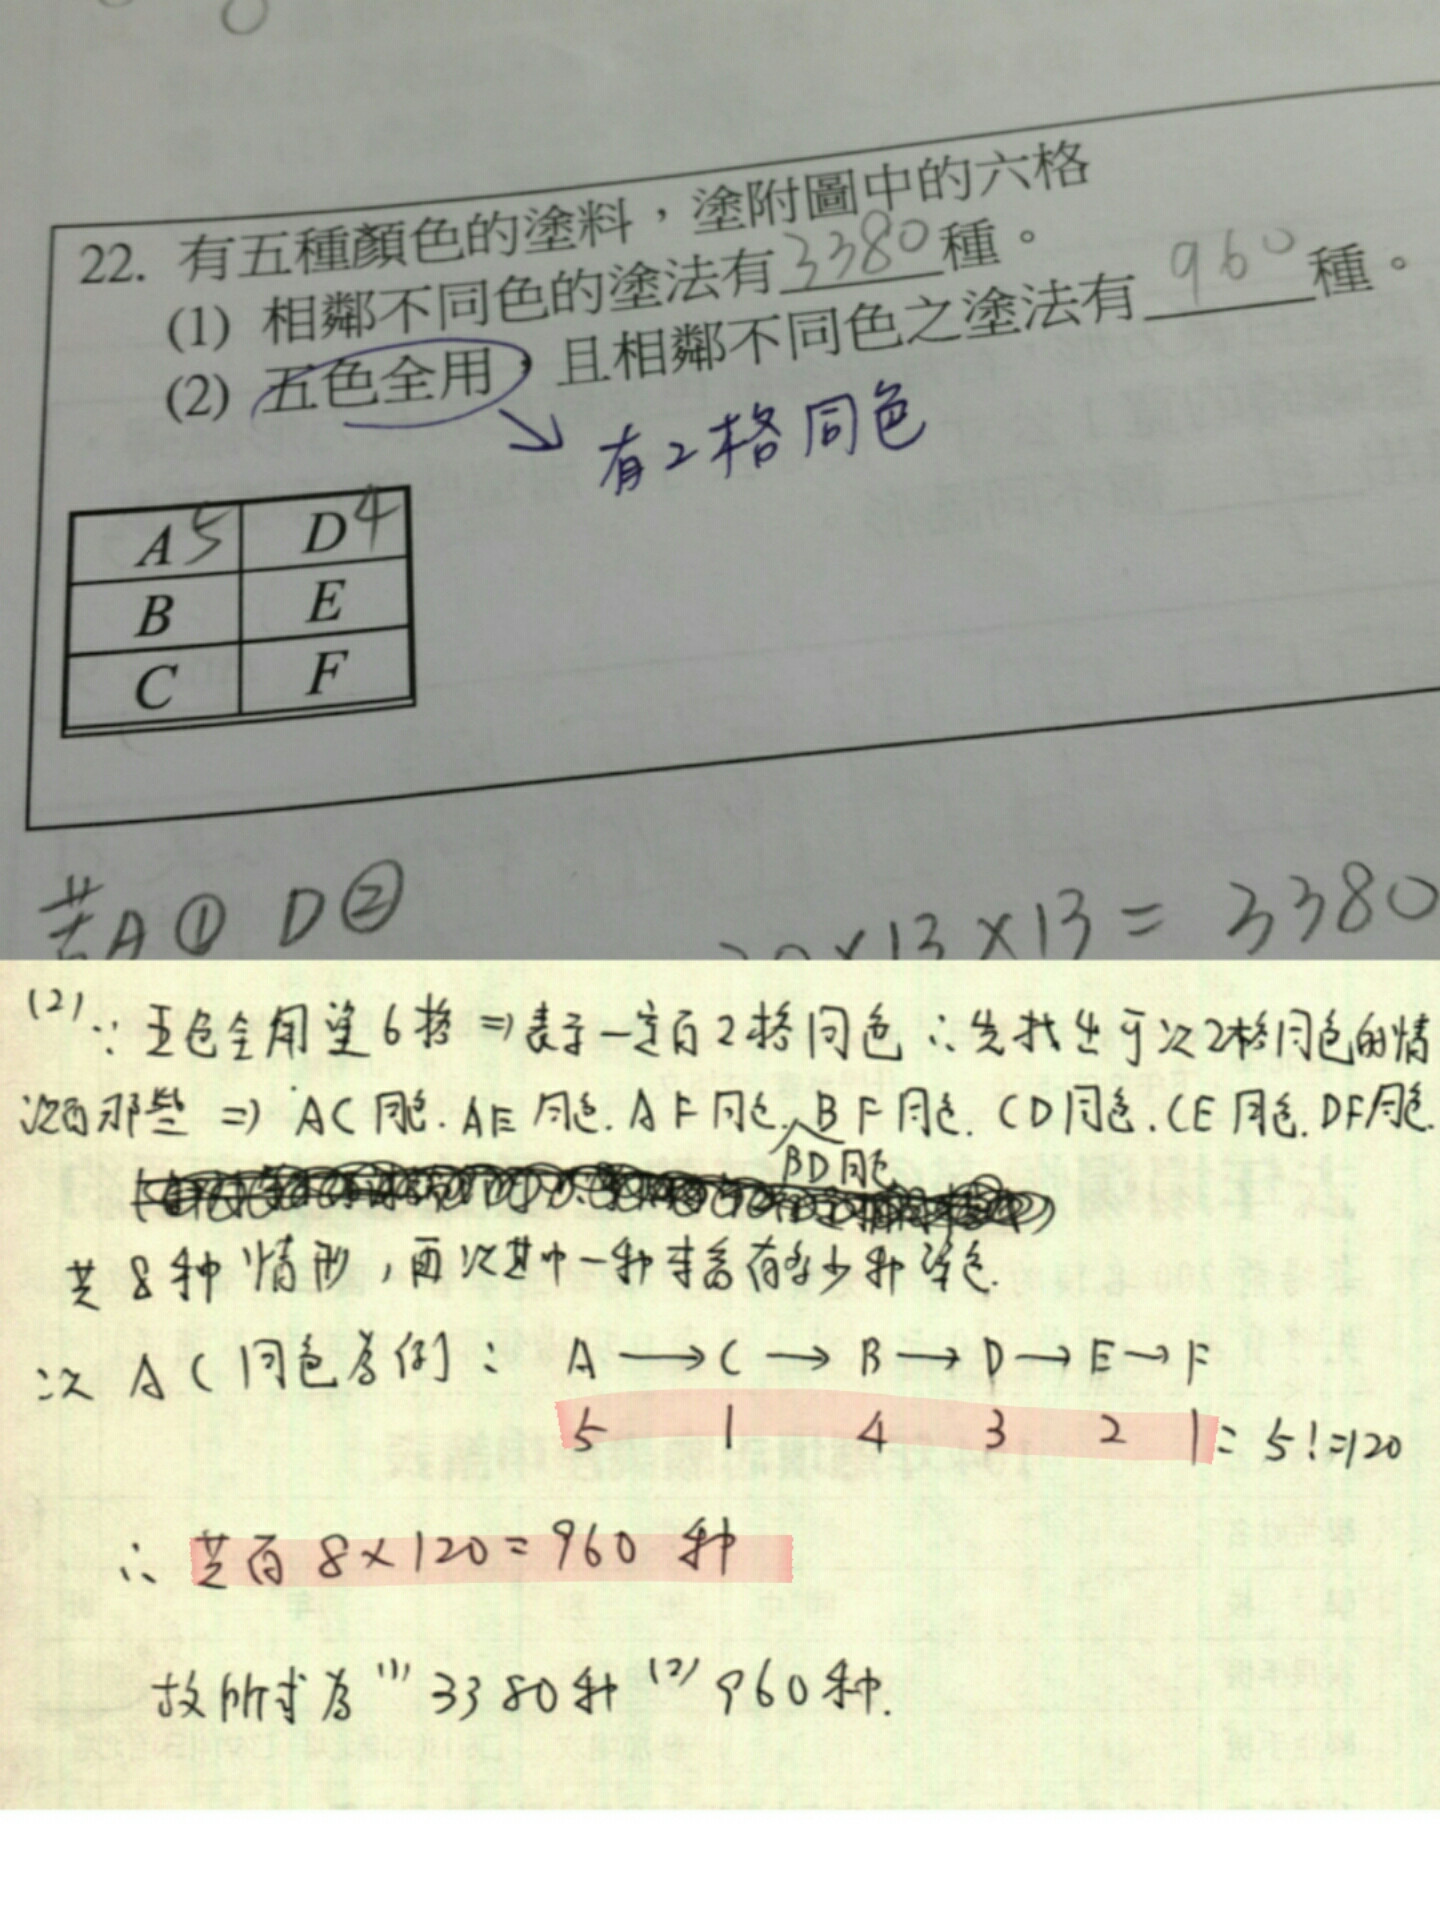 22. 有五種顏色的塗料，塗附圖中的六格
(1) 相鄰不同色的塗法有3380種。
(2) 五色全用，且相鄰不同色之塗法有960種。
有2格同色
A5 D4
B E
C F
若A① D②
×13×13=3380
(2)∵五色全用塗6格⇒表示一定有2格同色∴先找出可以2格同色的情
況有那些⇒AC同色.AE同色.AF同色.BF同色.CD同色.CE同色.DF同色.
BD同色
共8种情形，再以其中一种來看有多少种塗色.
以AC同色為例：A→C→B→D→E→F
5 1 4 3 2 1=5!=120
∴共有8×120=960种
故所求為(1)3380种(2)960种.